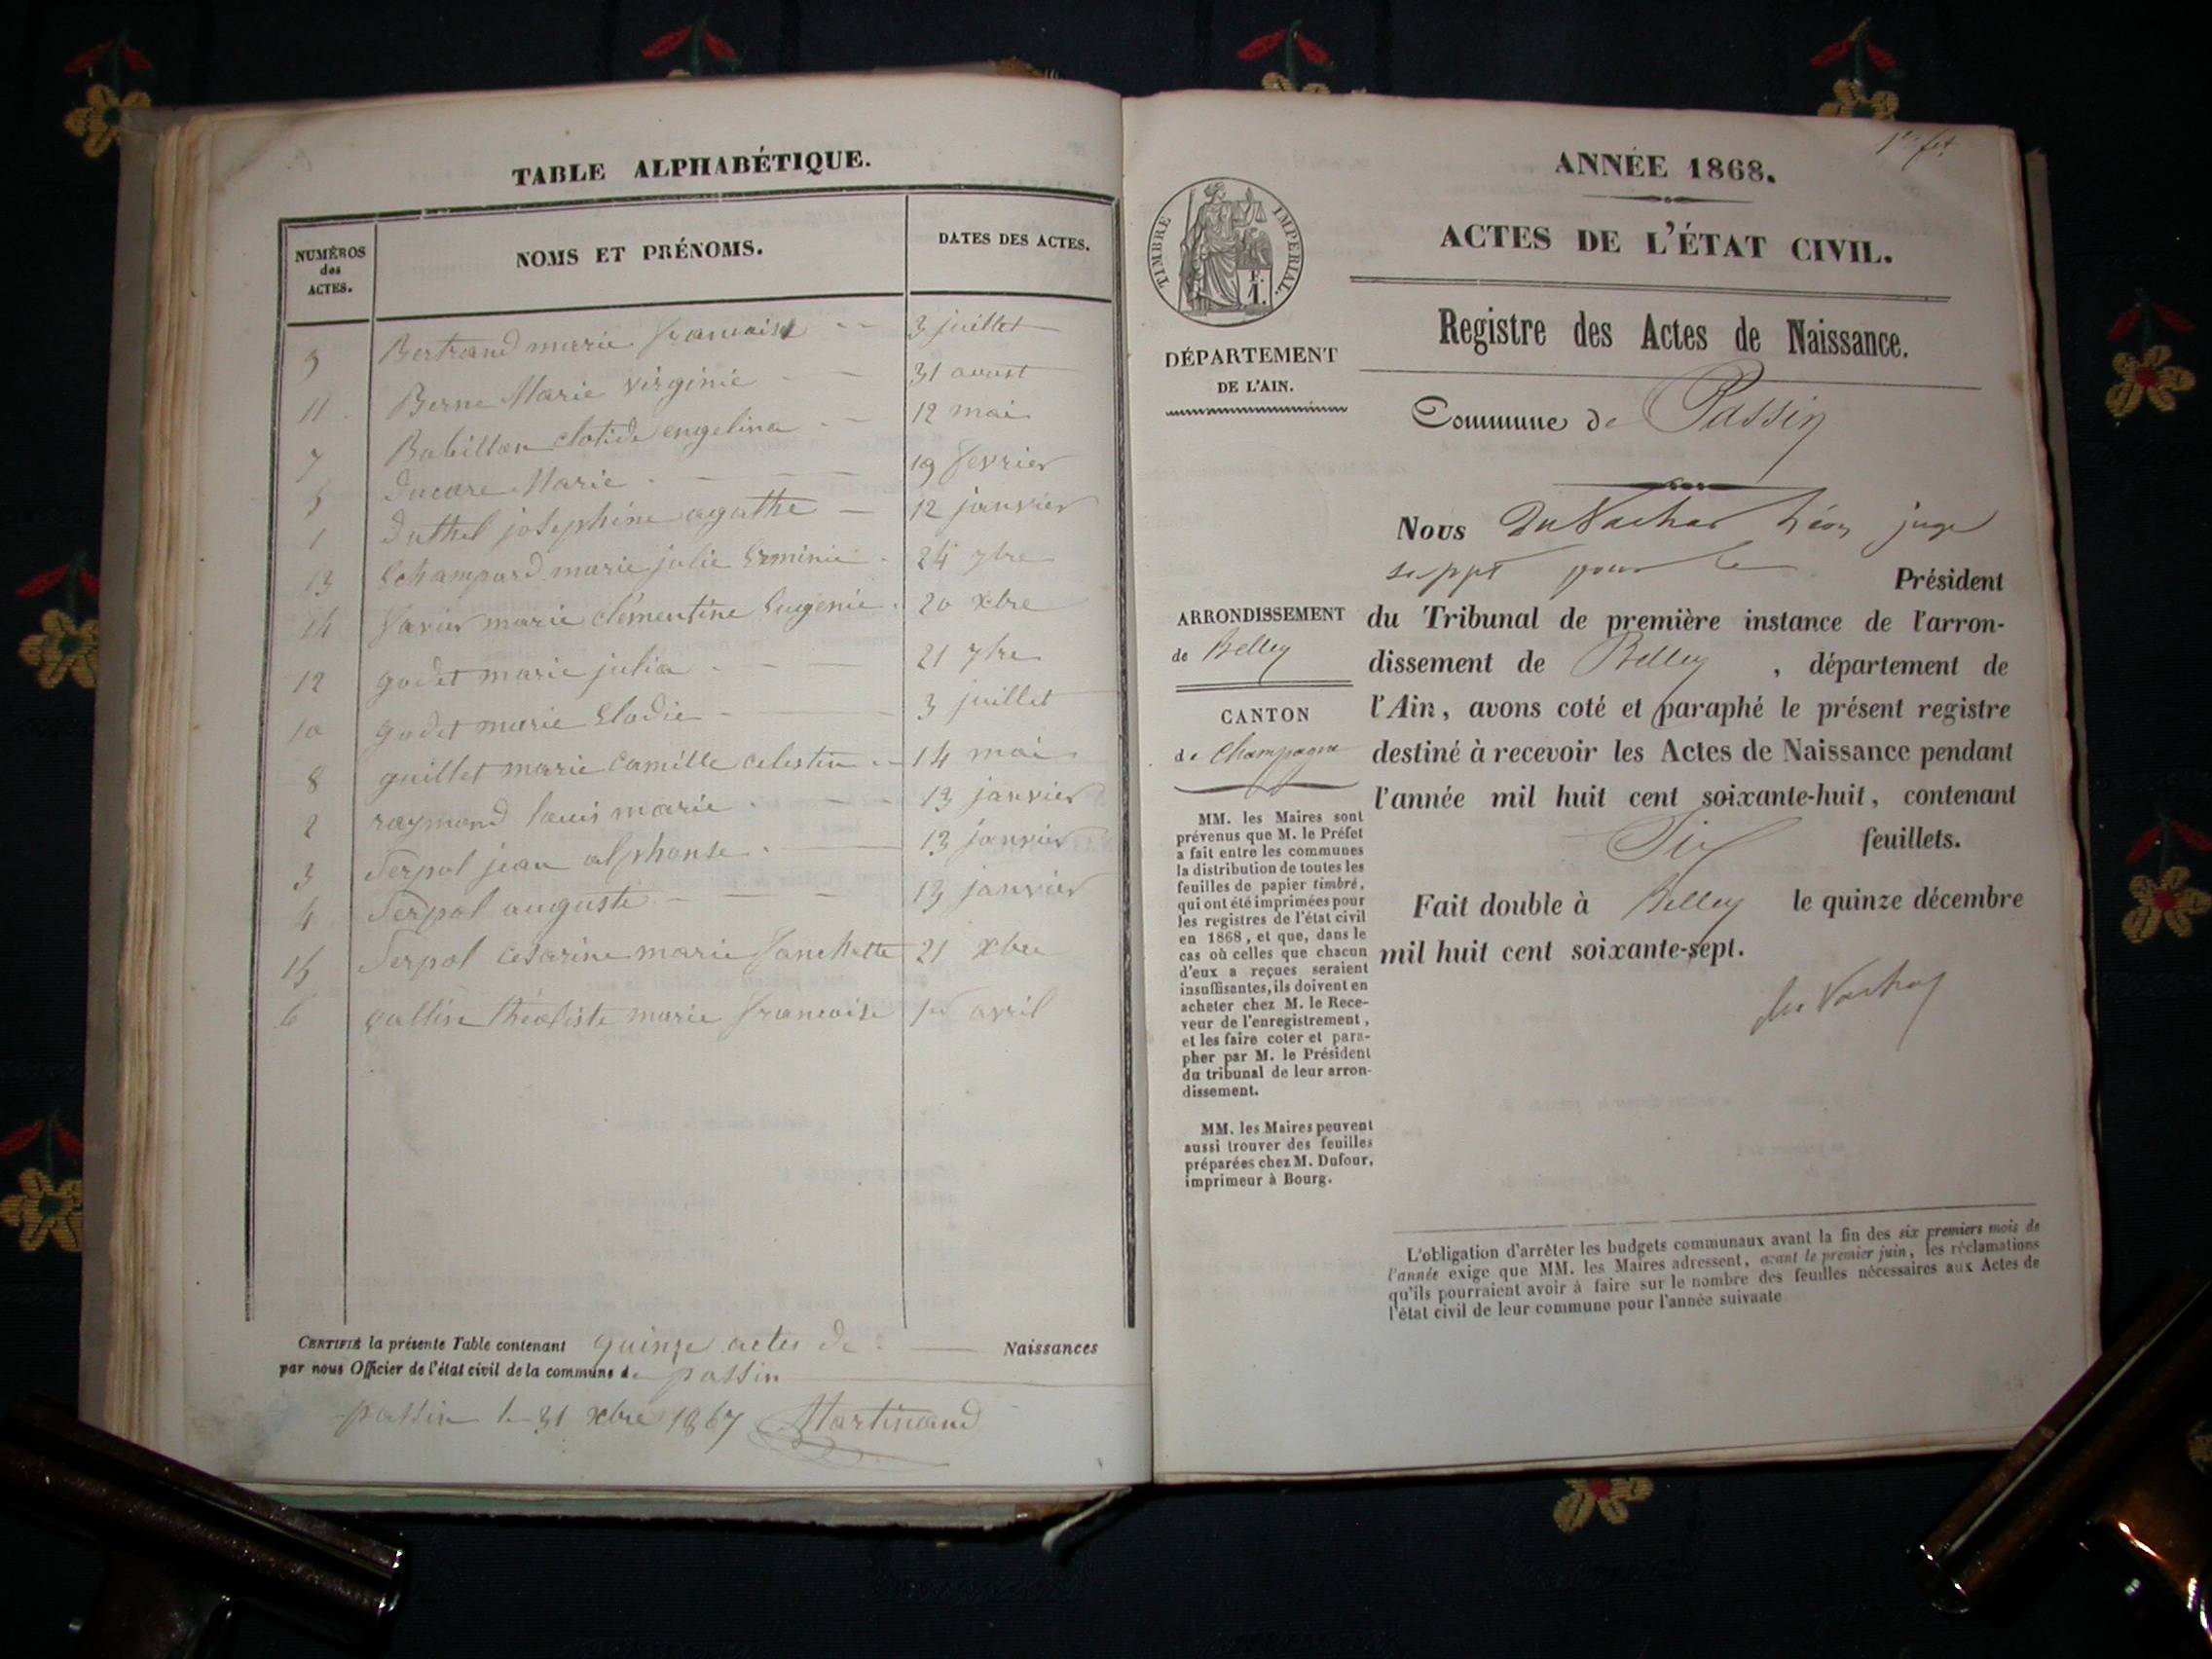 TABLE ALPHABÉTIQUE.
NUMÉROS
des
ACTES.
NOMS ET PRÉNOMS.
DATES DES ACTES.
9 Bertrand marie francoise 3 juillet
11 Berne Marie virginie 31 aoust
7 Babillon clotide engelina 12 mai
5 ducare Marie 19 fevrier
1 duthel josephine agathe 12 janvier
13 Echampard marie julie Erminie 24 7bre
14 favier marie clementine Eugenie 20 xbre
12 godet marie julia 21 7bre
10 godet marie Elodie 3 juillet
8 guillet marie Camille celestin 14 mai
2 raymond louis marie 13 janvier
3 Serpol jean alphonse 13 janvier
4 Serpol auguste 13 janvier
15 Serpol Cesarine marie fanchette 21 xbre
6 vallin théotiste marie francoise 1er avril
CERTIFIÉ la présente Table contenant quinze actes de Naissances
par nous Officier de l'état civil de la commune de passin
passin le 31 xbre 1867 Martinand
1er fet
ANNÉE 1868.
ACTES DE L'ÉTAT CIVIL.
Registre des Actes de Naissance.
TIMBRE IMPERIAL.
F.
1.
DÉPARTEMENT
DE L'AIN.
Commune de Passin
Nous Du Vachat Léon juge
suppt pour le Président
ARRONDISSEMENT
de Belley
CANTON
de Champagne
du Tribunal de première instance de l'arron-
dissement de Belley , département de
l'Ain, avons coté et paraphé le présent registre
destiné à recevoir les Actes de Naissance pendant
l'année mil huit cent soixante-huit, contenant
Six feuillets.
Fait double à Belley le quinze décembre
mil huit cent soixante-sept.
du Vachat
MM. les Maires sont
prévenus que M. le Préfet
a fait entre les communes
la distribution de toutes les
feuilles de papier timbré,
qui ont été imprimées pour
les registres de l'état civil
en 1868, et que, dans le
cas où celles que chacun
d'eux a reçues seraient
insuffisantes, ils doivent en
acheter chez M. le Rece-
veur de l'enregistrement,
et les faire coter et para-
pher par M. le Président
du tribunal de leur arron-
dissement.
MM. les Maires peuvent
aussi trouver des feuilles
préparées chez M. Dufour,
imprimeur à Bourg.
L'obligation d'arrêter les budgets communaux avant la fin des six premiers mois de
l'année exige que MM. les Maires adressent, avant le premier juin, les réclamations
qu'ils pourraient avoir à faire sur le nombre des feuilles nécessaires aux Actes de
l'état civil de leur commune pour l'année suivante